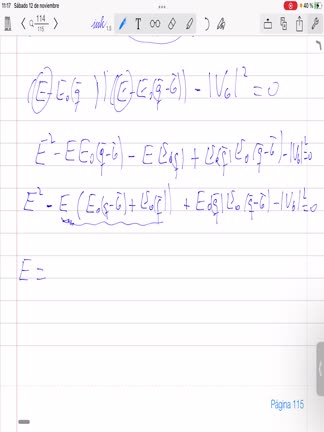 11:17 Sábado 12 de noviembre 40 %
114
115
1.5
(E - E₀(q̄)) (E - E₀(q̄-Ḡ)) - |V_G|² = 0
E² - E E₀(q̄-Ḡ) - E E₀(q̄) + E₀(q̄) E₀(q̄-Ḡ) - |V_G|² = 0
E² - E (E₀(q̄-Ḡ) + E₀(q̄)) + E₀(q̄) E₀(q̄-Ḡ) - |V_G|² = 0
E =
Página 115